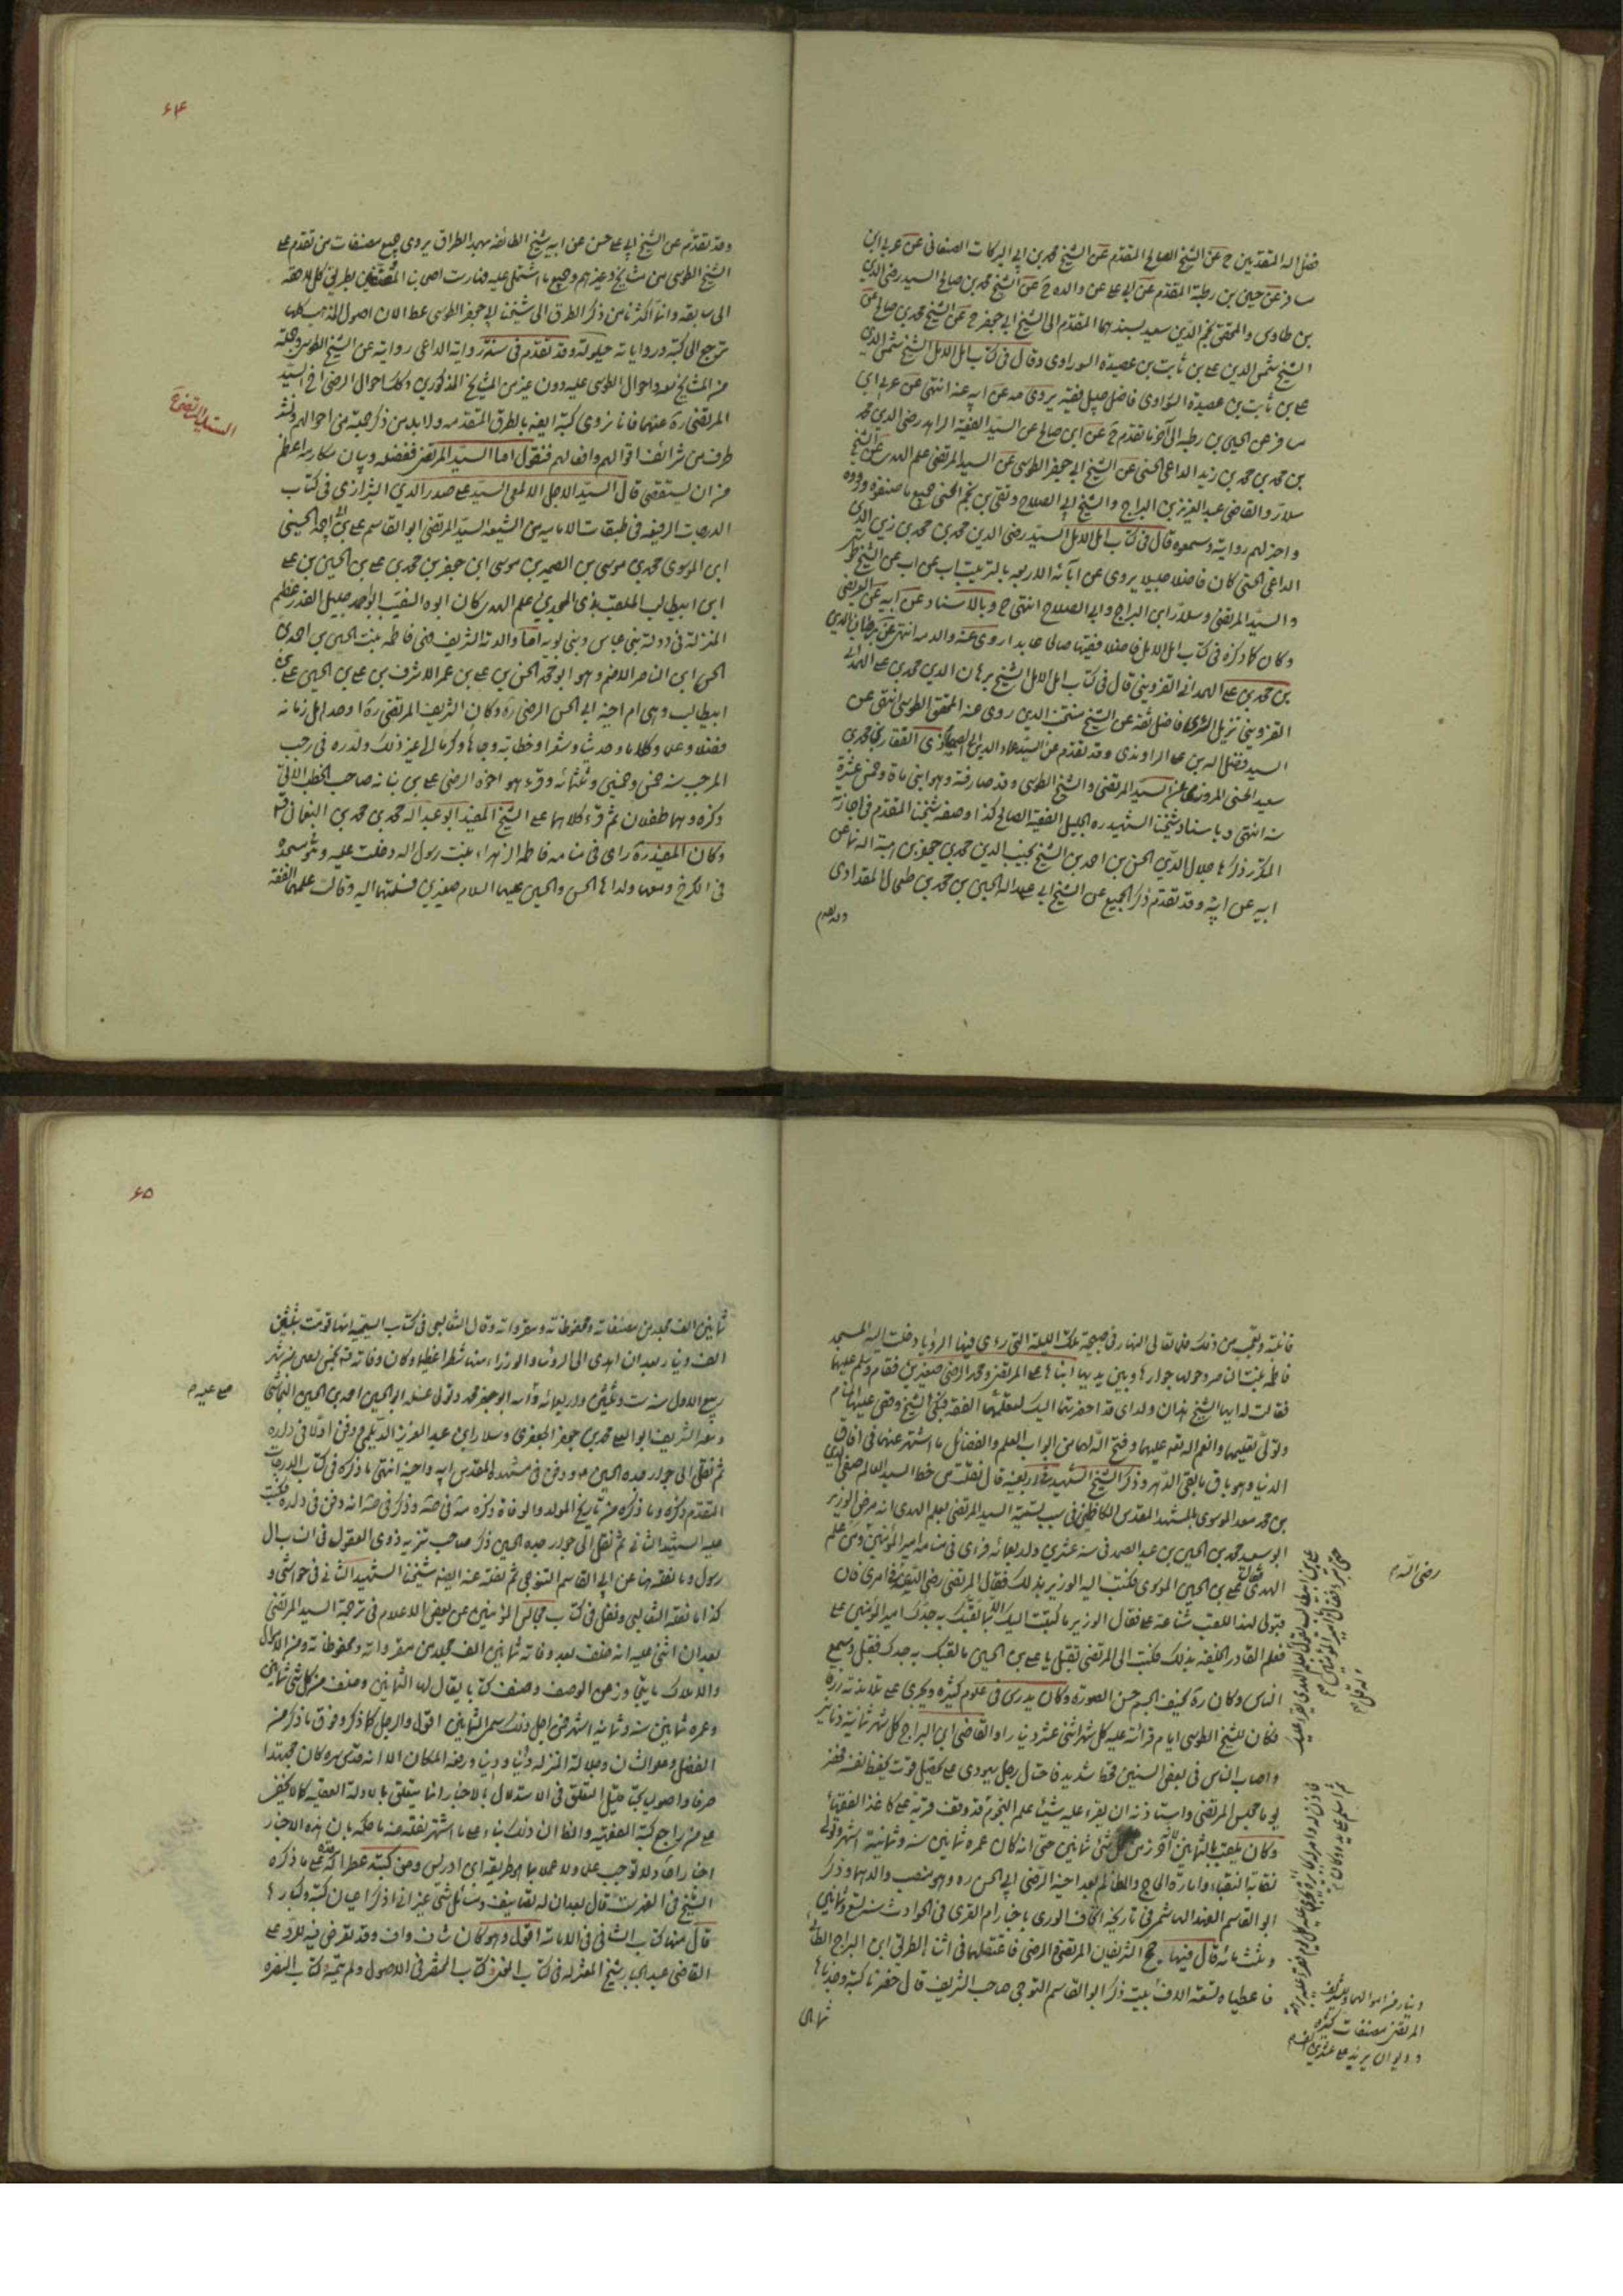 فضل الله المتقدمين ح عن الشيخ الصالح المقدم عن الشيخ محمد بن ابي البركات الصنعاني عن عربي بن
مسافر عن حسين بن رطبة المقدم عن ابي علي عن والده ح عن الشيخ محمد بن صالح السيد رضي الدين
بن طاوس والمحقق نجم الدين سعيد بسندهما المقدم الى الشيخ ابي جعفر ح عن الشيخ محمد بن صالح عن
الشيخ شمس الدين علي بن ثابت بن عصيدة السوراوي وقال في كتاب امل الامل الشيخ شمس الدين
علي بن ثابت بن عصيدة السوراوي فاضل جليل فقيه يروي عنه عن ابيه عنه انتهى عن عربي بن
مسافر عن الحسين بن رطبه الى آخر ما تقدم ح عن ابن صالح عن السيد الفقيه الزاهد رضي الدين محمد
بن محمد بن محمد بن زيد الداعي الحسني عن الشيخ ابي جعفر الطوسي عن السيد المرتضى علم الهدى عن الشيخ
سلار والقاضي عبد العزيز بن البراج والشيخ ابي الصلاح وتقي بن نجم الحلبي جميع ما صنفوه ورووه
واجيز لهم روايته وسمعوه قال في كتاب امل الامل السيد رضي الدين محمد بن محمد بن زين الدين
الداعي الحسني كان فاضلا جليلا يروي عن آبائه الاربعه بالترتيب اب عن اب عن الشيخ
والسيد المرتضى وسلار وابن البراج وابي الصلاح انتهى ح وبالاسناد عن ابيه عن
وكان كما ذكره في كتاب امل الامل فاضلا فقيها صالحا عابدا روى عنه والد منه انتهى عن برهان الدين
بن محمد بن علي الهمداني القزويني قال في كتاب امل الامل الشيخ برهان الدين محمد بن علي الهمداني
القزويني نزيل الري فاضل ثقة عن الشيخ منتجب الدين روى عنه المحقق الطوسي انتهى عن
السيد فضل الله بن علي الراوندي وقد تقدم عن السيد عماد الدين ابي الصمصام ذي الفقار بن محمد بن
سعيد الحسني المروزي عن السيد المرتضى والشيخ الطوسي وقد صادفته وهو ابن مائة وخمس عشرة
سنه انتهى وباسناد شيخنا الشهيد ره الجليل الفقيه الصالح كذا وصفه شيخنا المقدم في اجازته
المكرر ذكرها جلال الدين الحسن بن احمد بن الشيخ نجيب الدين محمد بن جعفر بن هبة الله نما عن
ابيه عن ابيه وقد تقدم ذكر الجميع عن الشيخ ابي عبد الله الحسين بن محمد بن طحال المقدادي
وقد تقدم
۶۴
وقد تقدم عن الشيخ ابي علي حسن عن ابيه شيخ الطائفه بهذا الطراق يروي جميع مصنفات من تقدم على
الشيخ الطوسي من مشايخه وغيرهم وجميع ما اشتمل عليه فهارست اصحابنا المصنفين بطريق كل لاحق
الى سابقه وانما اكثرنا من ذكر الطرق الى شيخنا ابي جعفر الطوسي عطا لان اصول المذهب كلها
ترجع الى كتبه ورواياته
من المشايخ بعد واحوال الطوسي عليه دون غيره من المشايخ المذكورين وكذا احوال الرضي اخ السيد
المرتضى ره عنهما فانا نروي كتبه ايضا بالطرق المتقدمه ولا بد من ذكر جملة من احوالهم ونشر
طرف من شرائف اقوالهم وافعالهم فنقول اما السيد المرتضى ففضله وبيان مكارمه اعظم
من ان يستقصى قال السيد الاجل الالمعي السيد علي صدر الدين الشيرازي في كتاب
الدرجات الرفيعه في طبقات الاماميه من الشيعه السيد المرتضى ابو القاسم علي بن ابي احمد الحسين
ابن الموسوي محمد بن موسى بن الصمد بن موسى ابن جعفر بن محمد بن علي بن الحسين بن علي
ابن ابيطالب الملقب بذي المجدين علم الهدى كان ابوه النقيب ابو احمد جليل القدر عظيم
المنزلة في دولة بني عباس وبني بويه اما والدته الشريف فهي فاطمه بنت الحسين بن احمد بن
الحسن ابن الناصر الاصم وهو ابو محمد الحسن بن علي بن عمر الاشرف بن علي بن الحسين علي بن
ابيطالب وهي ام اخيه ابي الحسن الرضي ره وكان الشريف المرتضى ره اوحد اهل زمانه
فضلا وعلما وكلاما وحديثا وشعرا وخطابه وجاها وكرما الى غير ذلك ولد ره في رجب
المرجب سنه خمس وخمسين وثلثمائه وقرء هو واخوه الرضي على بن نباته صاحب الخطب الاتي
ذكره وهما طفلان ثم قرء كلاهما على الشيخ المفيد ابو عبد الله محمد بن محمد بن النعمان قد
وكان المفيد ره راى في منامه فاطمه الزهراء بنت رسول الله دخلت عليه وهو في مسجده
في الكرخ ومعها ولداها الحسن والحسين عليهما السلام صغيرين فسلمتهما اليه وقالت علمهما الفقه
السيد المرتضى
فانتبه وتعجب من ذلك فلما تعالى النهار في صبيحة تلك الليلة التي رءى فيها الرؤيا دخلت اليه المسجد
فاطمه بنت الناصر وحولها جوارها وبين يديها ابناها علي المرتضى ومحمد الرضي صغيرين فقام وسلم عليها
فقالت له ايها الشيخ هذان ولداي قد احضرتهما اليك لتعلمهما الفقه فبكى الشيخ وقص عليها المنام
وتولى تعليمهما وانعم الله عليهما وفتح الله لهما من ابواب العلم والفضائل ما اشتهر عنهما في آفاق
الدنيا وهو باق ما بقي الدهر وذكر الشيخ الشهيد في اربعينه قال نقلت من خط السيد العالم صفي الدين
بن محمد معد الموسوي بالمشهد المقدس الكاظمي في سبب تسمية السيد المرتضى بعلم الهدى انه مرض الوزير
ابو سعيد محمد بن الحسين بن عبد الصمد في سنه عشرين واربعمائه فراى في منامه امير المؤمنين
الهدى فقال علي بن الحسين الموسوي فكتب اليه الوزير بذلك فقال المرتضى رضي الله عنه في امري فان
قبولي لهذا اللقب شناعة علي فقال الوزير ما كتبت اليك الا بما لقبك به جدك امير المؤمنين ع
فعلم القادر الخليفه بذلك فكتب الى المرتضى تقبل يا علي بن الحسين ما لقبك به جدك فقبل وسمع
الناس وكان ره نحيف الجسم حسن الصورة وكان يدرس في علوم كثيره ويجري على تلامذته رزقا
فكان للشيخ الطوسي ايام قرائته عليه كل شهر اثني عشر دينارا وللقاضي ابن البراج كل شهر ثمانية دنانير
واصاب الناس في بعض السنين قحط شديد فاحتال رجل يهودي على تحصيل قوت يحفظ نفسه فحضر
يوما مجلس المرتضى واستاذنه ان يقرء عليه شيئا من علم النجوم قد وقف قرية على كاغذ الفقهاء
وكان يلقب بالثمانين لانه احرز من كل شئ ثمانين حتى انه كان عمره ثمانين سنه وثمانية اشهر وتولى
نقابة النقباء وامارة الحاج والمظالم بعد اخيه الرضي ابي الحسن ره وهو منصب والدهما وذكر
ابو القاسم بن فهد الهاشمي في تاريخه اتحاف الورى باخبار ام القرى في الحوادث سنه تسع وثمانين
وثلثمائه قال فيها حج الشريفان المرتضى والرضي فاعتقلهما في اثناء الطريق ابن الجراح الطائي
فاعطياه تسعه الاف
ذكر ابو القاسم التنوخي صاحب الشريف قال حصرنا كتبه وجدناها
ثمانين
رضي الله م
دينار من اموالهما وللشريف
المرتضى مصنفات كثيره
وديوان يزيد على عشرين الف م
۶۵
ثمانين الف مجلد من مصنفاته ومحفوظاته ومقرواته وقال الثعالبي في كتاب اليتيمه انها قومت بثلثين
الف دينار بعد ان اهدى الى الرؤساء والوزراء منها شطرا عظيما وكان وفاته قده لخمس بقين من شهر
ربيع الاول سنه ست وثلثين واربعمائه وصلى عليه ابنه ابو جعفر محمد وتولى غسله ابو الحسين احمد بن الحسين النجاشي
ومعه الشريف ابو يعلى محمد بن جعفر الجعفري وسلار ابن عبد العزيز الديلمي ودفن اولا في داره
ثم نقل الى جوار جده الحسين ع ودفن في مشهده المقدس مع ابيه واخيه انتهى ما ذكره في كتاب الدرجات
المتقدم ذكره وما ذكره من تاريخ المولد والوفاة ذكره
عليه الشهيد الثاني ثم نقل الى جوار جده الحسين ذكر صاحب تنزيه ذوي العقول في انساب ال
رسول وما نقله هنا عن ابي القاسم التنوخي ثم نقله عنه ايضا شيخنا الشهيد الثاني في حواشي و
كذا ما نقله الثعالبي ونقل في كتاب مجالس المؤمنين عن بعض الاعلام في ترجمة السيد المرتضى
بعد ان اثنى عليه انه خلف بعد وفاته ثمانين الف مجلد من مقرواته ومحفوظاته ومن الاموال
والاملاك ما يتجاوز عن الوصف وصنف كتابا يقال لها الثمانين وخلف من كل شئ ثمانين
وعمره ثمانين سنه وثمانيه اشهر فمن اجل ذلك سمي الثمانين اقول والرجل كما ذكر وفوق ما ذكر من
الفضل وعلو الشان وجلالة المنزله دنيا ودينا ورفعه المكان الا انه قدس سره كان مجتهدا
صرفا واصوليا بحتا قليل التعلق في الاستدلال بالاخبار انما يتعلق بالادلة العقليه كما لا يخفى
على من راجع كتبه الفقهيه والظاهر ان ذلك بناء على ما اشتهر نقله عنه من حكمه بان هذه الاخبار
اخبار احاد لا توجب علما ولا عملا كما هو طريقه ابن ادريس ومن كتبه عطر الله مرقده على ما ذكره
الشيخ في الفهرست قال بعد ان له تصانيف ومسائل شتى غير اني اذكر اعيان كتبه وكبارها
قال منها كتاب الشافي في الامامة اقول وهو كان شاف واف وقد تعرض فيه للرد على
القاضي عبد الجبار شيخ المعتزله في كتاب المغني وكتاب الملخص في الاصول ولم يتمه وكتاب الذخيره